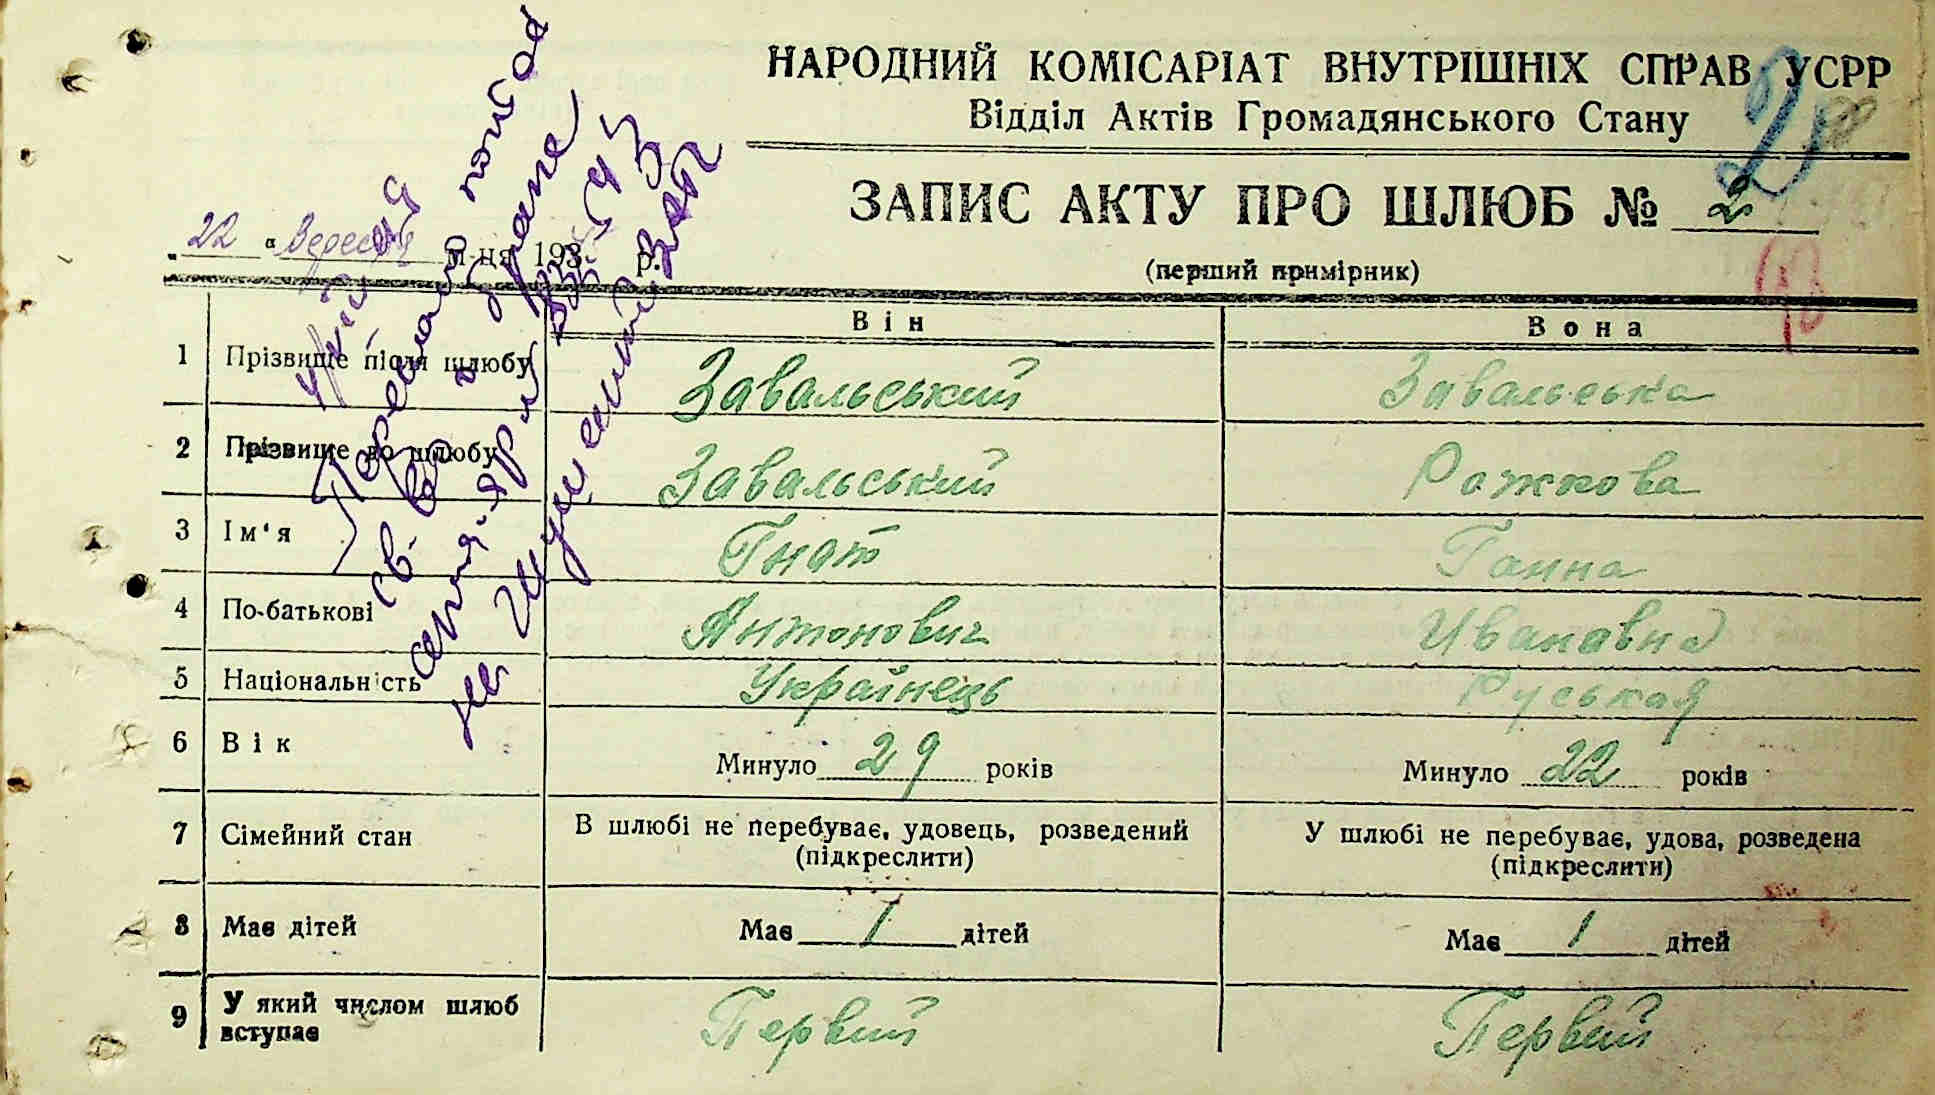 НАРОДНИЙ КОМІСАРІАТ ВНУТРІШНІХ СПРАВ УСРР
Відділ Актів Громадянського Стану
ЗАПИС АКТУ ПРО ШЛЮБ № 2
(перший примірник)
2
„22" Вересня м-ця 193 р.
Він Вона
1 Прізвище після шлюбу Завальський Завальська
2 Прізвище до шлюбу Завальський Рожкова
3 Ім'я Гнат Ганна
4 По-батькові Антонович Ивановна
5 Національність Українець Руськая
6 Вік Минуло 29 років Минуло 22 років
7 Сімейний стан В шлюбі не перебуває, удовець, розведений У шлюбі не перебуває, удова, розведена
(підкреслити) (підкреслити)
8 Має дітей Має 1 дітей Має 1 дітей
9 У який числом шлюб Первий Первий
вступає